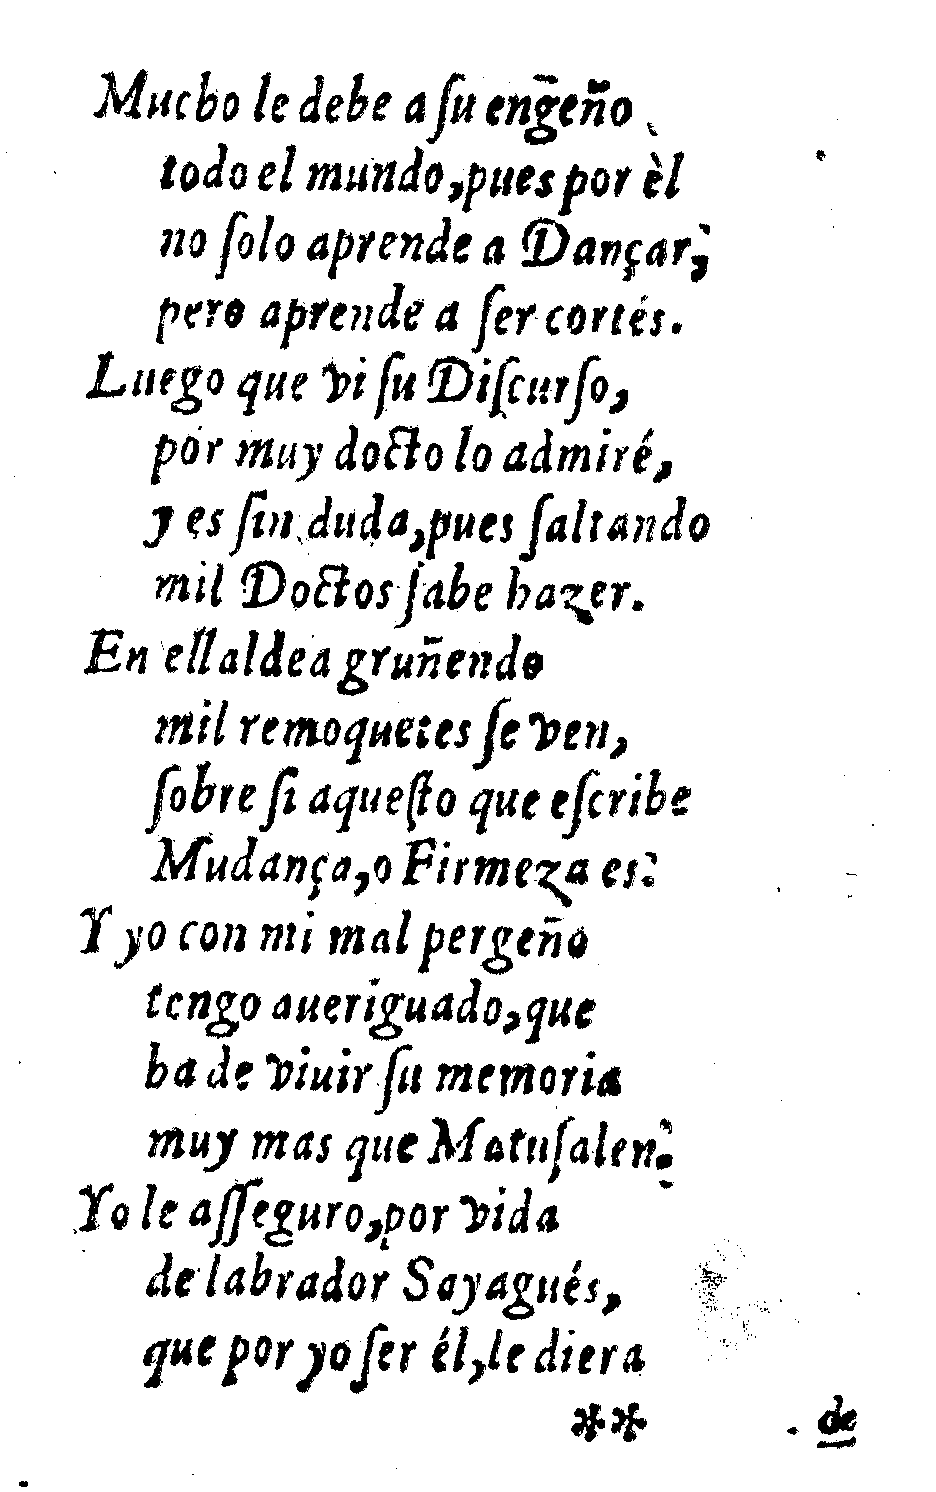 Mucho le debe a ſu enḡeño
todo el mundo, pues por èl
no ſolo aprende a Dançar,
pero aprende a ſer cortés.
Luego que vi ſu Diſcurſo,
por muy docto lo admiré,
y es ſin duda, pues ſaltando
mil Doctos ſabe hazer.
En ell aldea gruñendo
mil remoquetes ſe ven,
ſobre ſi aqueſto que eſcribe
Mudança, o Firmeza es:
Y yo con mi mal pergeño
tengo aueriguado, que
ha de viuir ſu memoria
muy mas que Matuſalen.
Yo le aſſeguro, por vida
de labrador Sayagués,
que por yo ſer él, le diera
** de